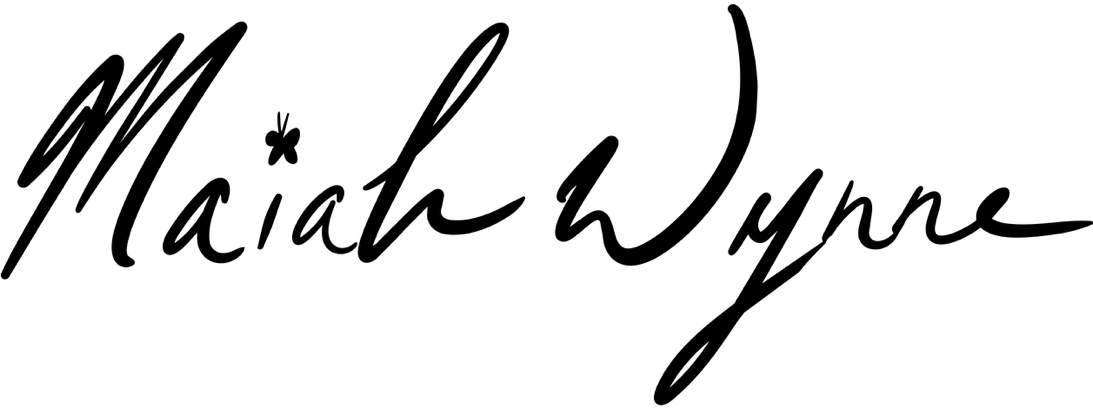 Maiah Wynne